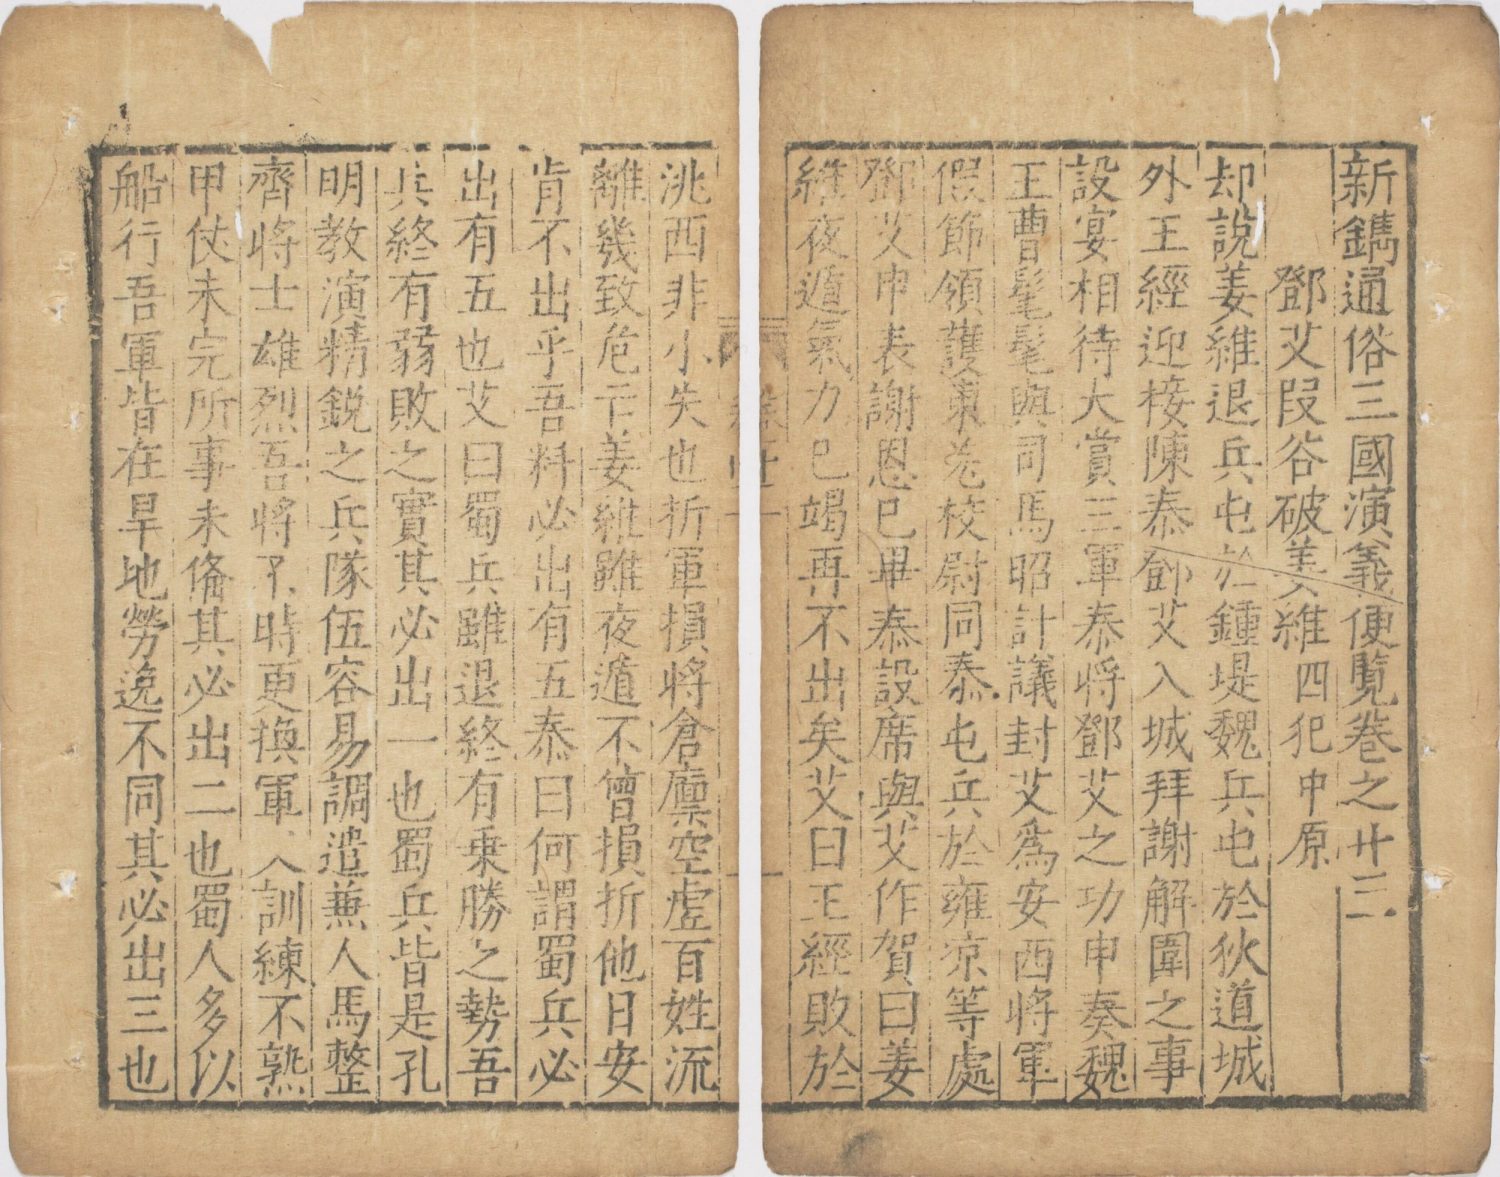 新鐫通俗三國演義便覽卷之廿三
鄧艾段谷破姜維四犯中原
却說姜維退兵屯於鍾堤魏兵屯於狄道城
外王經迎接陳泰鄧艾入城拜謝解圍之事
設宴相待大賞三軍泰將鄧艾之功申奏魏
王曹髦髦與司馬昭計議封艾爲安西將軍
假節領護東羌校尉同泰屯兵於雍凉等處
鄧艾申表謝恩已畢泰設席與艾作賀曰姜
維夜遁氣力已竭再不出矣艾曰王經敗於
洮西非小失也折軍損將倉廪空虛百姓流
離幾致危亡姜維雖夜遁不曾損折他日安
肯不出乎吾料必出有五泰曰何謂蜀兵必
出有五也艾曰蜀兵雖退終有乗勝之勢吾
兵終有弱敗之實其必出一也蜀兵皆是孔
明教演精銳之兵隊伍容易調遣兼人馬整
齊將士雄烈吾將不時更換軍人訓練不熟
甲仗未完所事未俻其必出二也蜀人多以
船行吾軍皆在旱地勞逸不同其必出三也